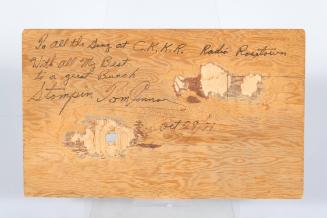 To all the Gang at C.K.K.R. Radio Rosetown
With all My Best
to a great Bunch
Stompin Tom Connors
Oct 29/77